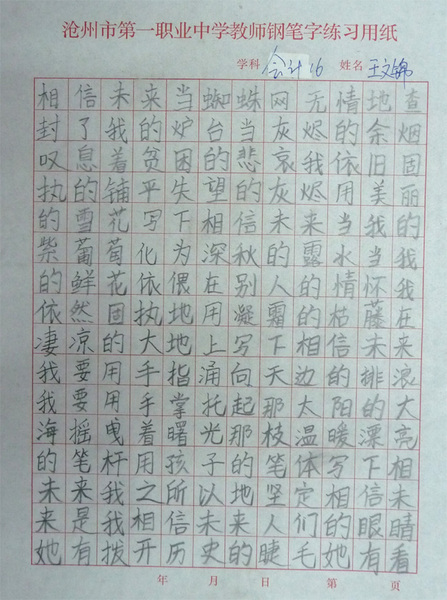 沧州市第一职业中学教师钢笔字练习用纸
学科 会计16 姓名 王文锦
相信未来当蜘蛛网无情地查
封了我的炉台当灰烬的余烟
叹息着贫困的悲哀我依旧固
执的铺平失望的灰烬用美丽
的雪花写下相信未来当我的
紫葡萄化为深秋的露水当我
的鲜花依偎在别人的情怀我
依然固执地用凝霜的枯藤在
凄凉的大地上写下相信未来
我要用手指涌向天边的排浪
我要用手掌托起那太阳的大
海摇曳着曙光那枝温暖漂亮
的笔杆用孩子的笔体写下相
的未来我之所以地坚定相信未
来是我相信未来人们的眼睛
她有拨开历史的睫毛她有看
年 月 日 第 页